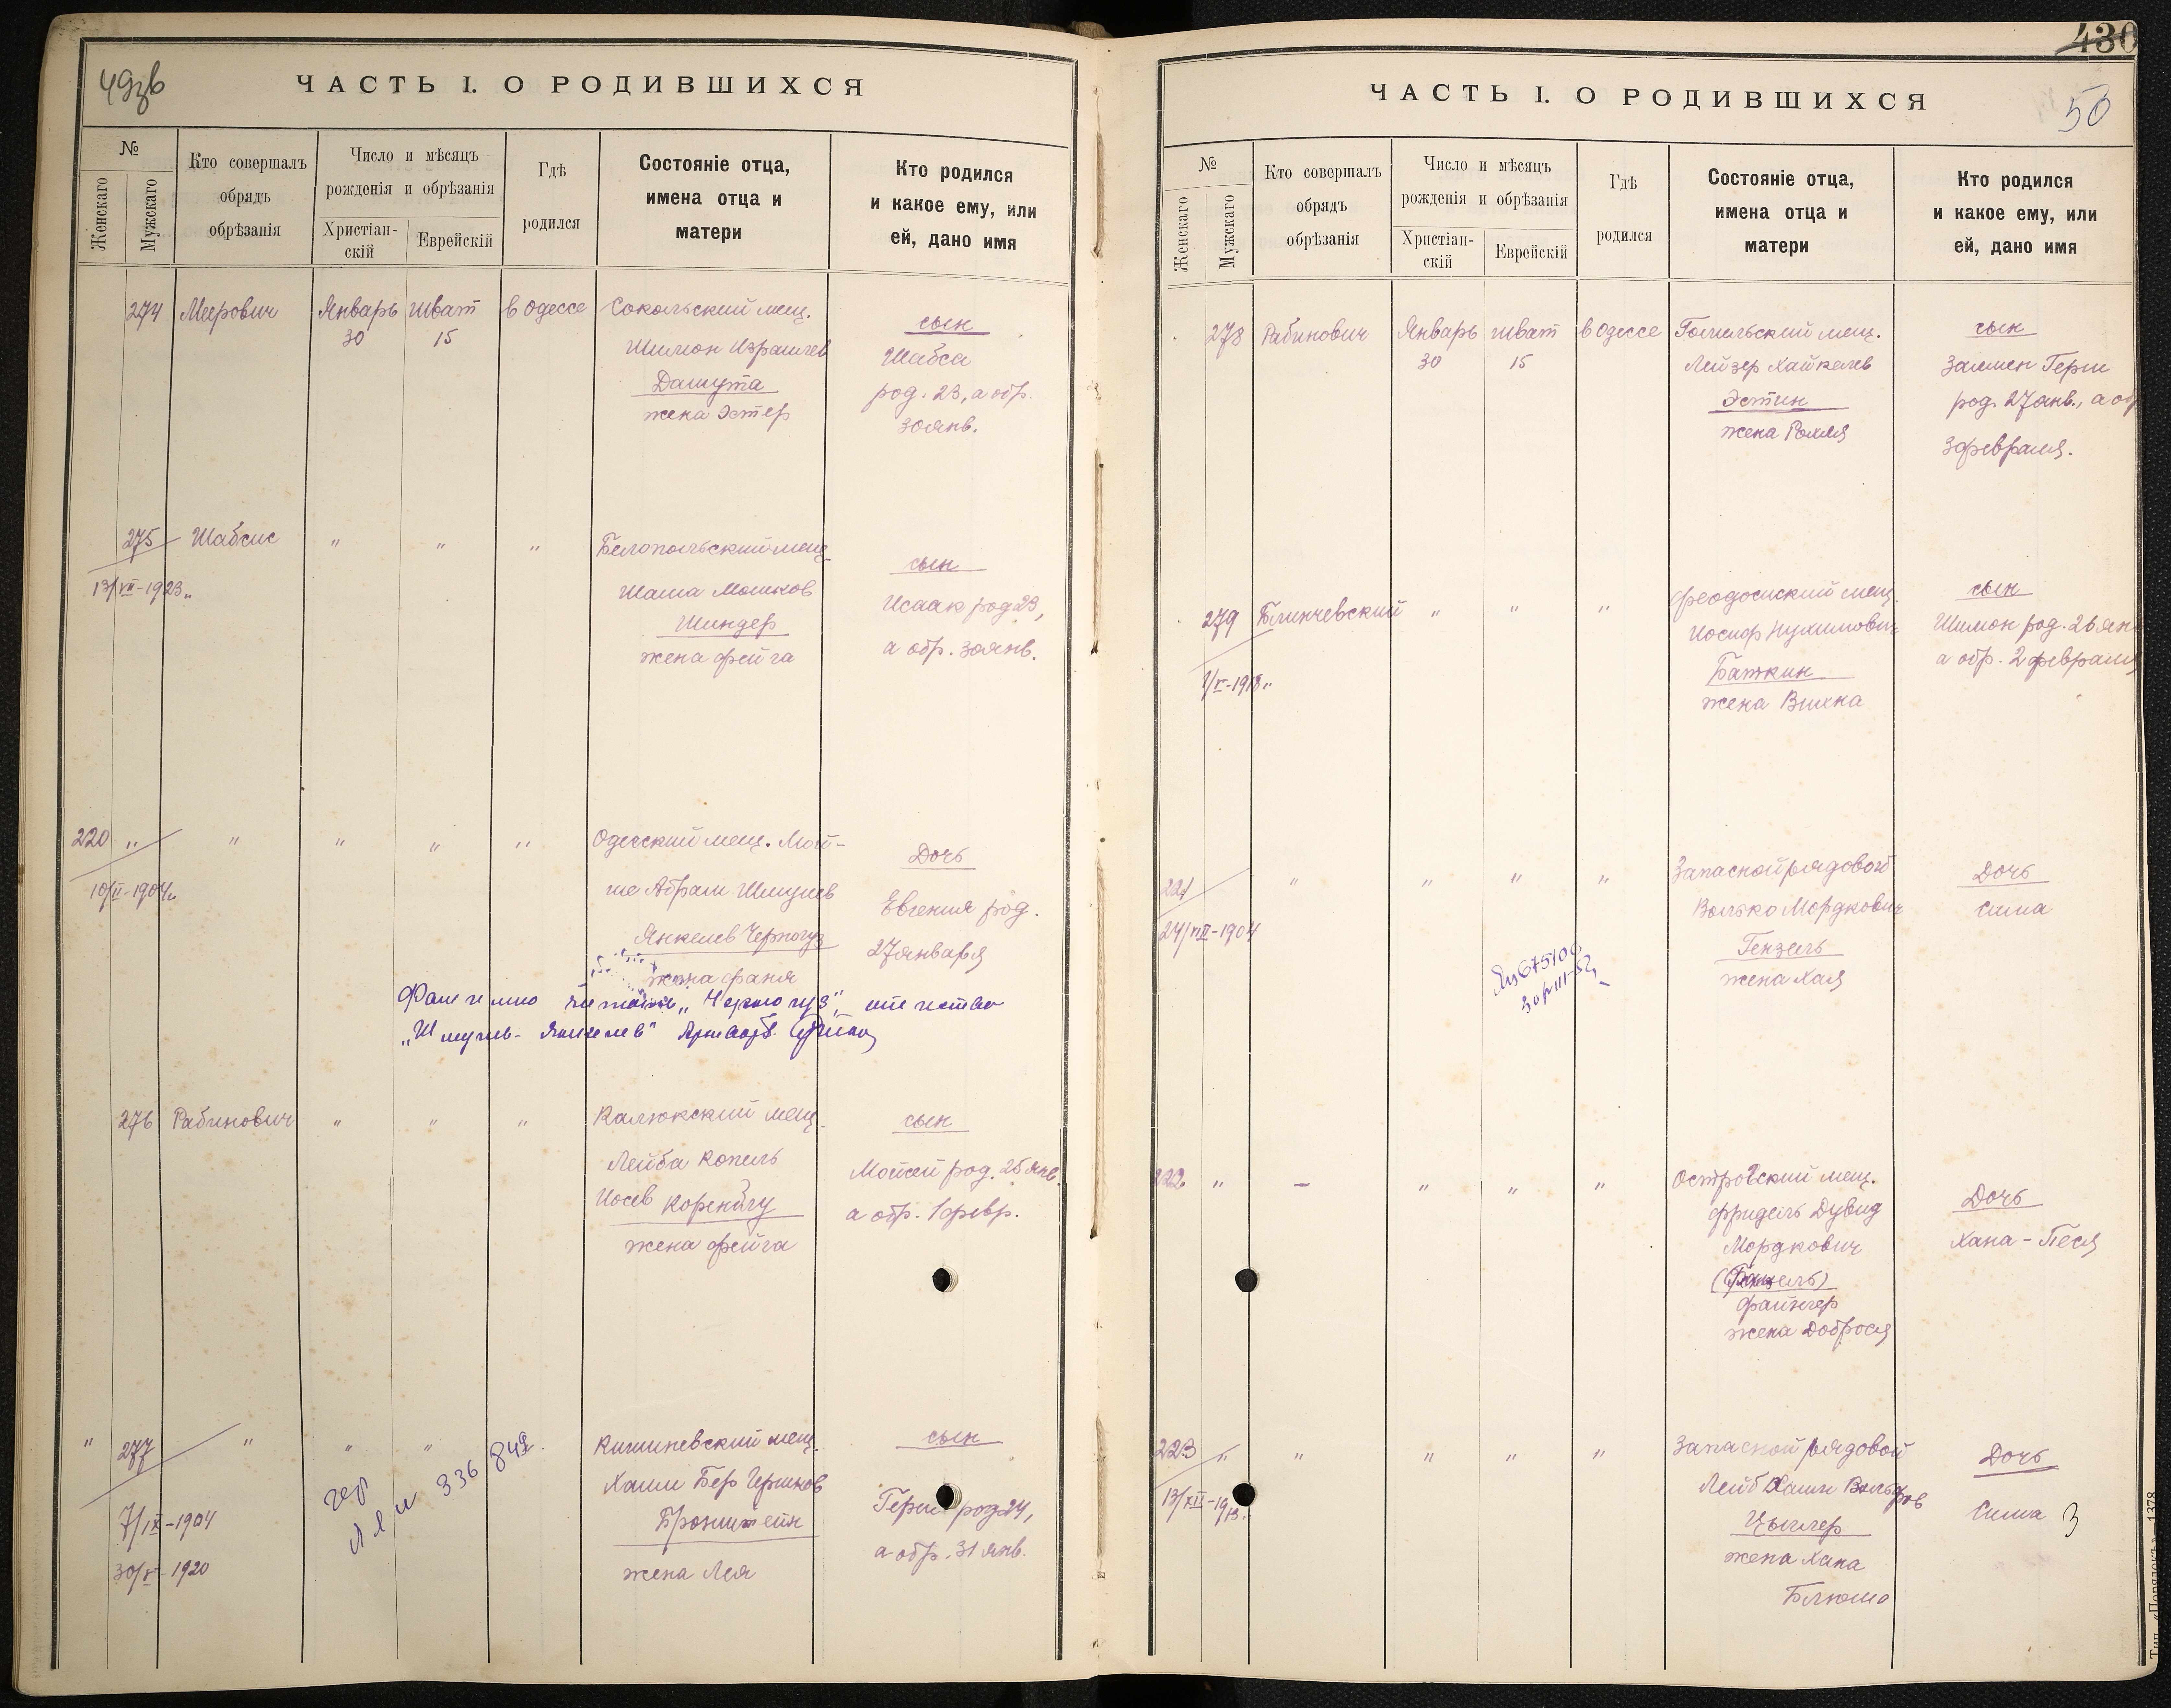 49зв
ЧАСТЬ I. О РОДИВШИХСЯ
№
Женскаго
Мужскаго
Кто совершалъ
обрядъ
обрѣзанія
Число и мѣсяцъ
рожденія и обрѣзанія
Христіан-
скій
Еврейскій
Гдѣ
родился
Состояніе отца,
имена отца и
матери
Кто родился
и какое ему, или
ей, дано имя
274 Меерович Январь 30 Шват 15 в Одессе
Сокольский мещ.
Шимон Израилев
Дашута
жена Эстер
сын
Шабса
род. 23, а обр.
30 янв.
275 Шабсис " " "
13/VII-1923.
Белопольский мещ.
Шама Мошков
Шиндер
жена Фейга
сын
Исаак род 23,
а обр. 30 янв.
220 " " " " "
10/II-1904
Одесский мещ. Мой-
ше Абрам Шмулев
Янкелев Черногуз
жена Фаня
Дочь
Евгения род.
27 января
"Черногуз", отчество
276 Рабинович " " "
Калюкский мещ.
Лейба Копель
Иосев
жена Фейга
сын
Мойсей род. 25 янв.
а обр. 1 февр.
" 277 " " "
7/IX-1904
30/V-1920
336 849
Кишиневский мещ.
Хаим Бер Гершков
Бронштейн
жена Лея
сын
Герш род 24,
а обр. 31 янв.
430
50
ЧАСТЬ I. О РОДИВШИХСЯ
№
Женскаго
Мужскаго
Кто совершалъ
обрядъ
обрѣзанія
Число и мѣсяцъ
рожденія и обрѣзанія
Христіан-
скій
Еврейскій
Гдѣ
родился
Состояніе отца,
имена отца и
матери
Кто родился
и какое ему, или
ей, дано имя
278 Рабинович Январь 30 Шват 15 в Одессе
Гомельский мещ.
Лейзер Хайкелев
Эстин
жена Рохля
сын
Залмен Герш
род. 27 янв., а об
3 февраля.
279 Блинчевский " " "
1/V-1918
Феодосийский мещ.
Иосиф Нухимович
Баткин
жена Вихна
сын
Шимон род. 26 ян
а обр. 2 февраля
221 " " " "
24/VII-1904
Запасной рядовой
Волько Мордкович
Гензель
жена Хая
Дочь
Сима
222 " – " " "
Островский мещ.
Фридель Дувид
Мордкович
Файнгер
жена Доброся
Дочь
Хана-Песя
223 " " " " "
13/XII-1913.
Запасной рядовой
Лейб Хаим Вольфов
Цыглер
жена Хана
Блюма
Дочь
Сима З
Тип. «Порядокъ» 1378